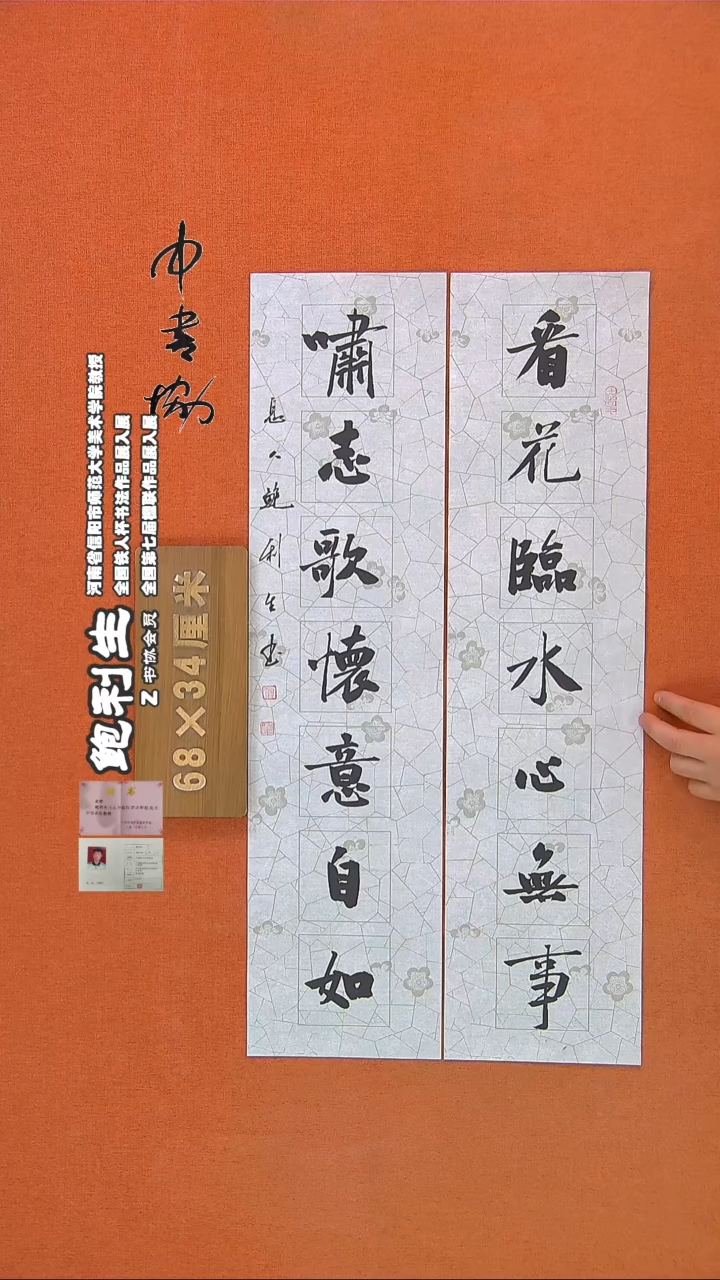 看花臨水心無事
嘯志歌懷意自如
息人鲍利生书
中书协
鲍利生
河南省信阳市师范大学美术学院教授
全国铁人杯书法作品展入展
全国第七届楹联作品展入展
Z 书协会员
68×34厘米